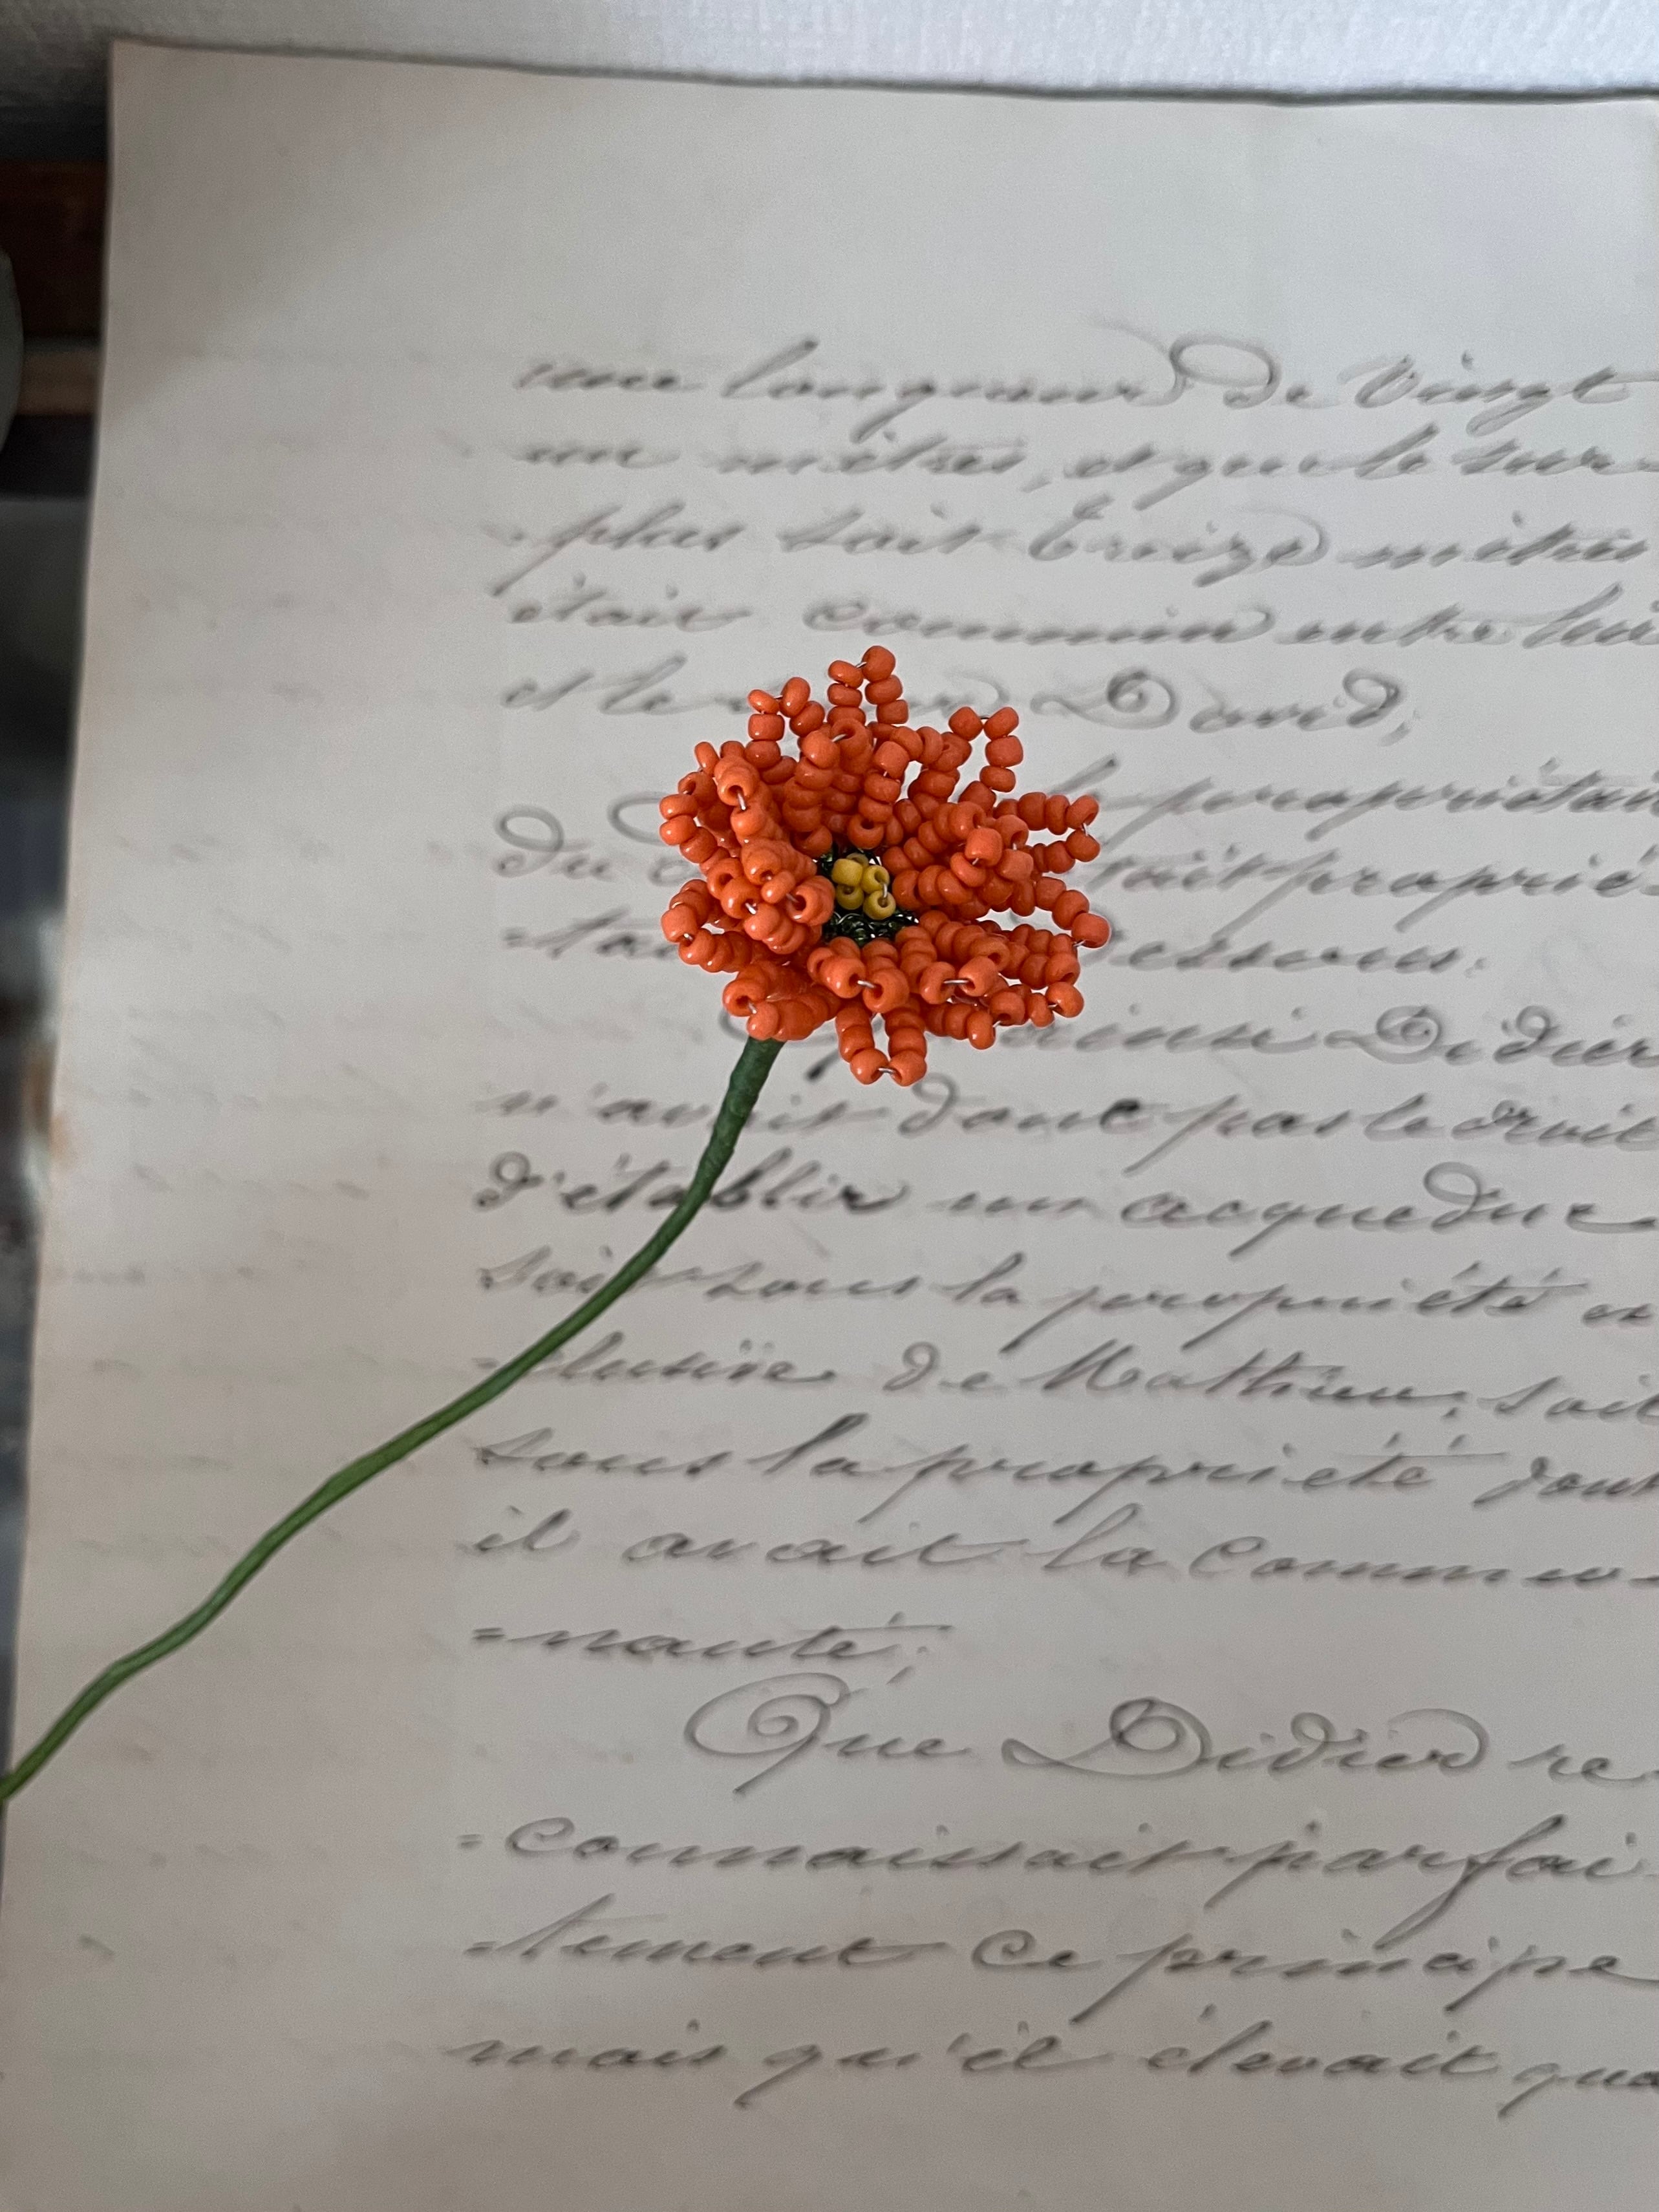 une longueur de vingt
un mètres, et que le sur
-plus soit treize mètres
était commun entre lui
et le David;
propriétai
du était proprié-
-tai dessous.
ainsi Didier
n'avait donc pas le droit
d'établir un acqueduc
soit sous la propriété ex
-clusive de Mathieu; soit
sous la propriété dont
il avait la Commu-
=nauté;
Que Didier re-
=connaissait parfai-
-tement ce principe
mais qu'il élevait